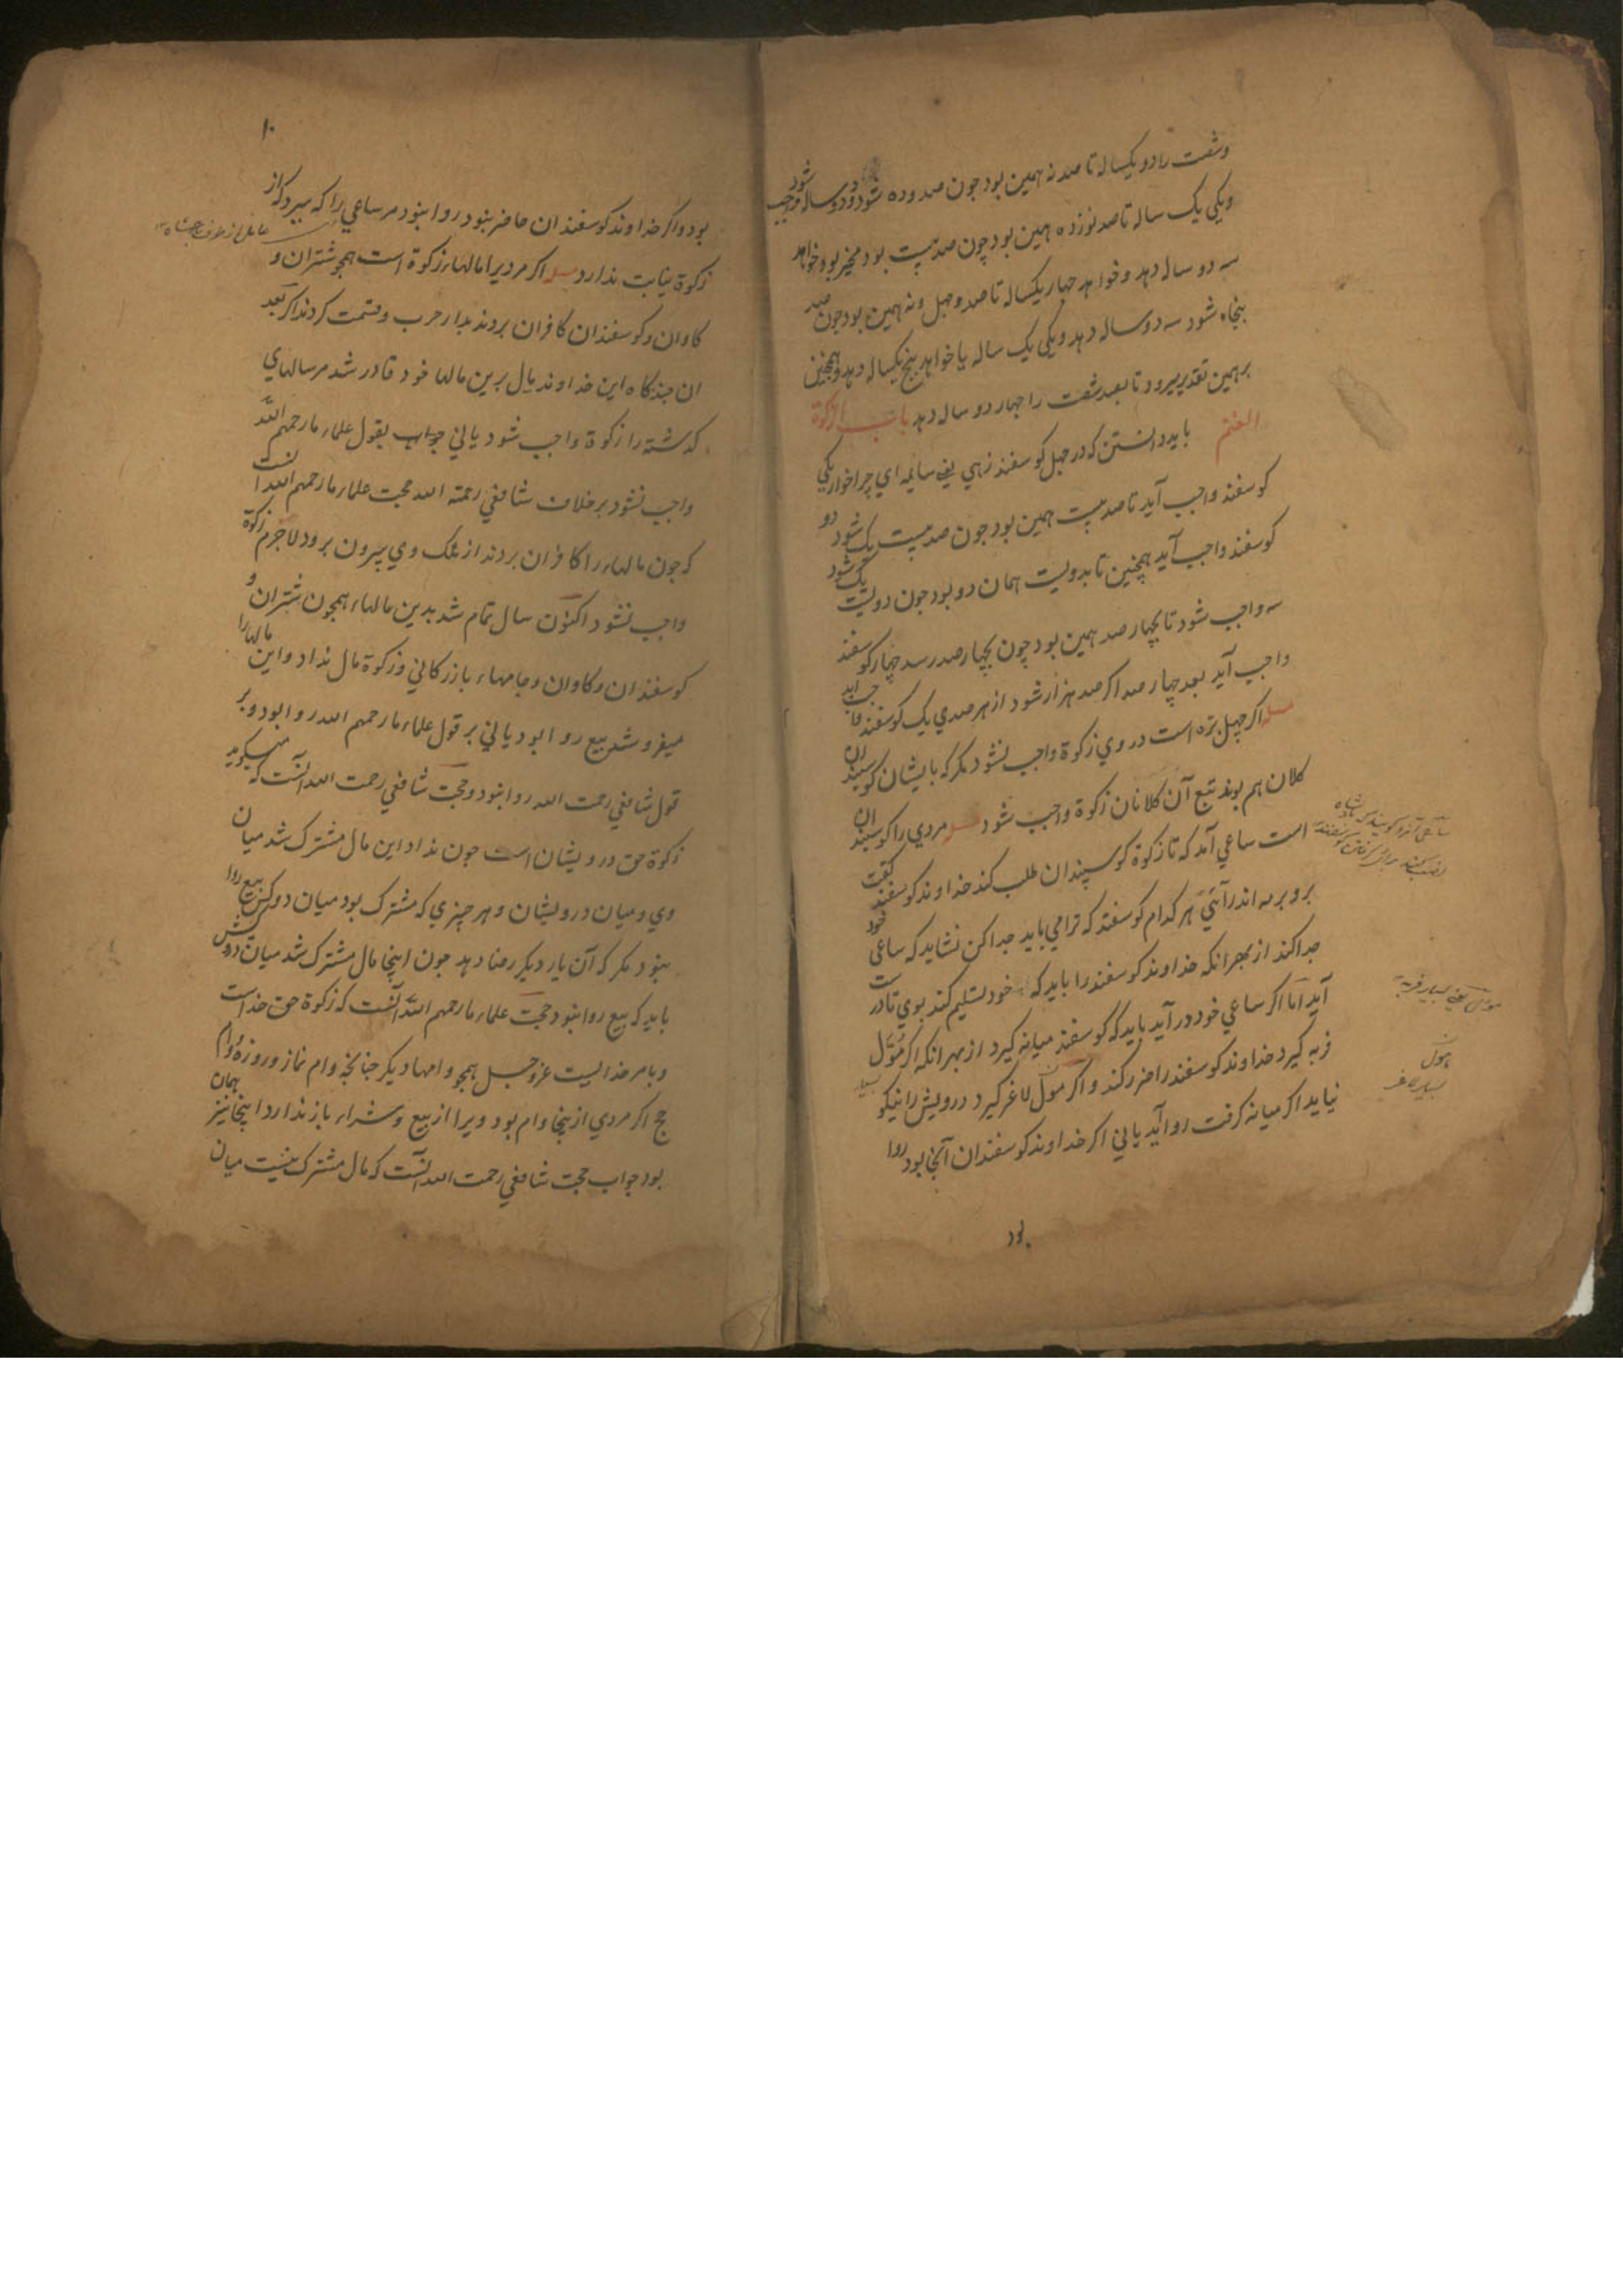 وشصت را دو یکساله تا صد نه همین بود جون صد وده شود دو دوساله واجب شود
ویکی یک ساله تا صد نوزده همین بود چون صد بیست بود مخیر بود خواهد
سه دو ساله دهد و خواهد جهار یکساله تا صد وجهل ونه همین بود جون صد
بنجاه شود سه دوساله دهد ویکی یک ساله یا خواهد بنج یکساله دهد وهمجنین
برهمین تقدیر میرود تا بعد شصت را جهار دو ساله دهد باب الزکوة
الغنم باید دانستن که در جهل کوسفند زهی یعنی سایمه ای چرا خوار یکی
کوسفند واجب آید تا صد بیست همین بود جون صد بیست یک شود دو
کوسفند واجب آید همچنین تا بدویست همان دو بود جون دویست یک شود
سه واجب شود تا بجهار صد همین بود چون بجهار صد رسد جهار کوسفند
واجب آید بعد چهار صد اکر صد هزار شود از هر صدی یک کوسفند واجب آید
مسله اکر چهل بره است در وی زکوة واجب نشود مکر که بایشان کوسپندان
کلان هم بوند تبع آن کلانان زکوة واجب شود مسله مردی را کوسپندان
است ساعی آمد که تا زکوة کوسپندان طلب کند خداوند کوسفند کفت
برو برمه اندر آئی هر کدام کوسفند که ترا می باید جدا کن نشاید که ساعی خود
جدا کند از بهر انکه خداوند کوسفند را باید که خود تسلیم کند بوی تا درست
آید اما اکر ساعی خود در آید باید که کوسفند میانه کیرد از بهر انکه اکر مؤل
فربه کیرد خداوند کوسفند را ضرر کند و اکر مول لاغر کیرد درویش را نیکو
نیاید اکر میانه کرفت روا آید یا نی اکر خداوند کوسفندان آنجا بود روا
بود
بسیار لاغر
۱۰
بود واکر خداوند کوسفندان حاضر نبود روا نبود مر ساعی را که ببرد که از
زکوة نیابت ندارد مسله اکر مردیرا مالهاء زکوة است همجو شتران و
کاوان وکوسفندان کافران بردند بدار حرب وقسمت کردند اکر بعد
ان جندکاه این خداوند مال برین مالها خود قادر شد مر سالهای
کذشته را زکوة واجب شود یا نی جواب بقول علماء ما رحمهم الله
واجب نشود برخلاف شافعی رحمة الله حجت علماء ما رحمهم الله انست
که جون مالهاء را کافران بردند از ملک وی بیرون برود لاجرم زکوة
واجب نشود اکنون سال تمام شد بدین مالهاء همجون شتران و
کوسفندان وکاوان وجامهاء بازرکانی وزکوة مال نداد واین مالها را
میفروشد بیع روا بود یا نی بر قول علماء ما رحمهم الله روا بود وبر
قول شافعی رحمت الله روا نبود وحجت شافعی رحمت الله آنست که میکوید
زکوة حق درویشان است جون نداد این مال مشترک شد میان
وی ومیان درویشان وهر چیزی که مشترک بود میان دو کس بیع روا
نبود مکر که آن یار دیکر رضا دهد جون اینجا مال مشترک شد میان درویش
باید که بیع روا نبود حجت علماء ما رحمهم الله آنست که زکوة حق خداست
وبامر خدایست عز وجل همجو وامها دیکر جنانجه وام نماز وروزه و وام
حج اکر مردی ازینجا وام بود ویرا از بیع وشراء باز ندارد اینجا نیز همان
بود جواب حجت شافعی رحمت الله آنست که مال مشترک نیست میان